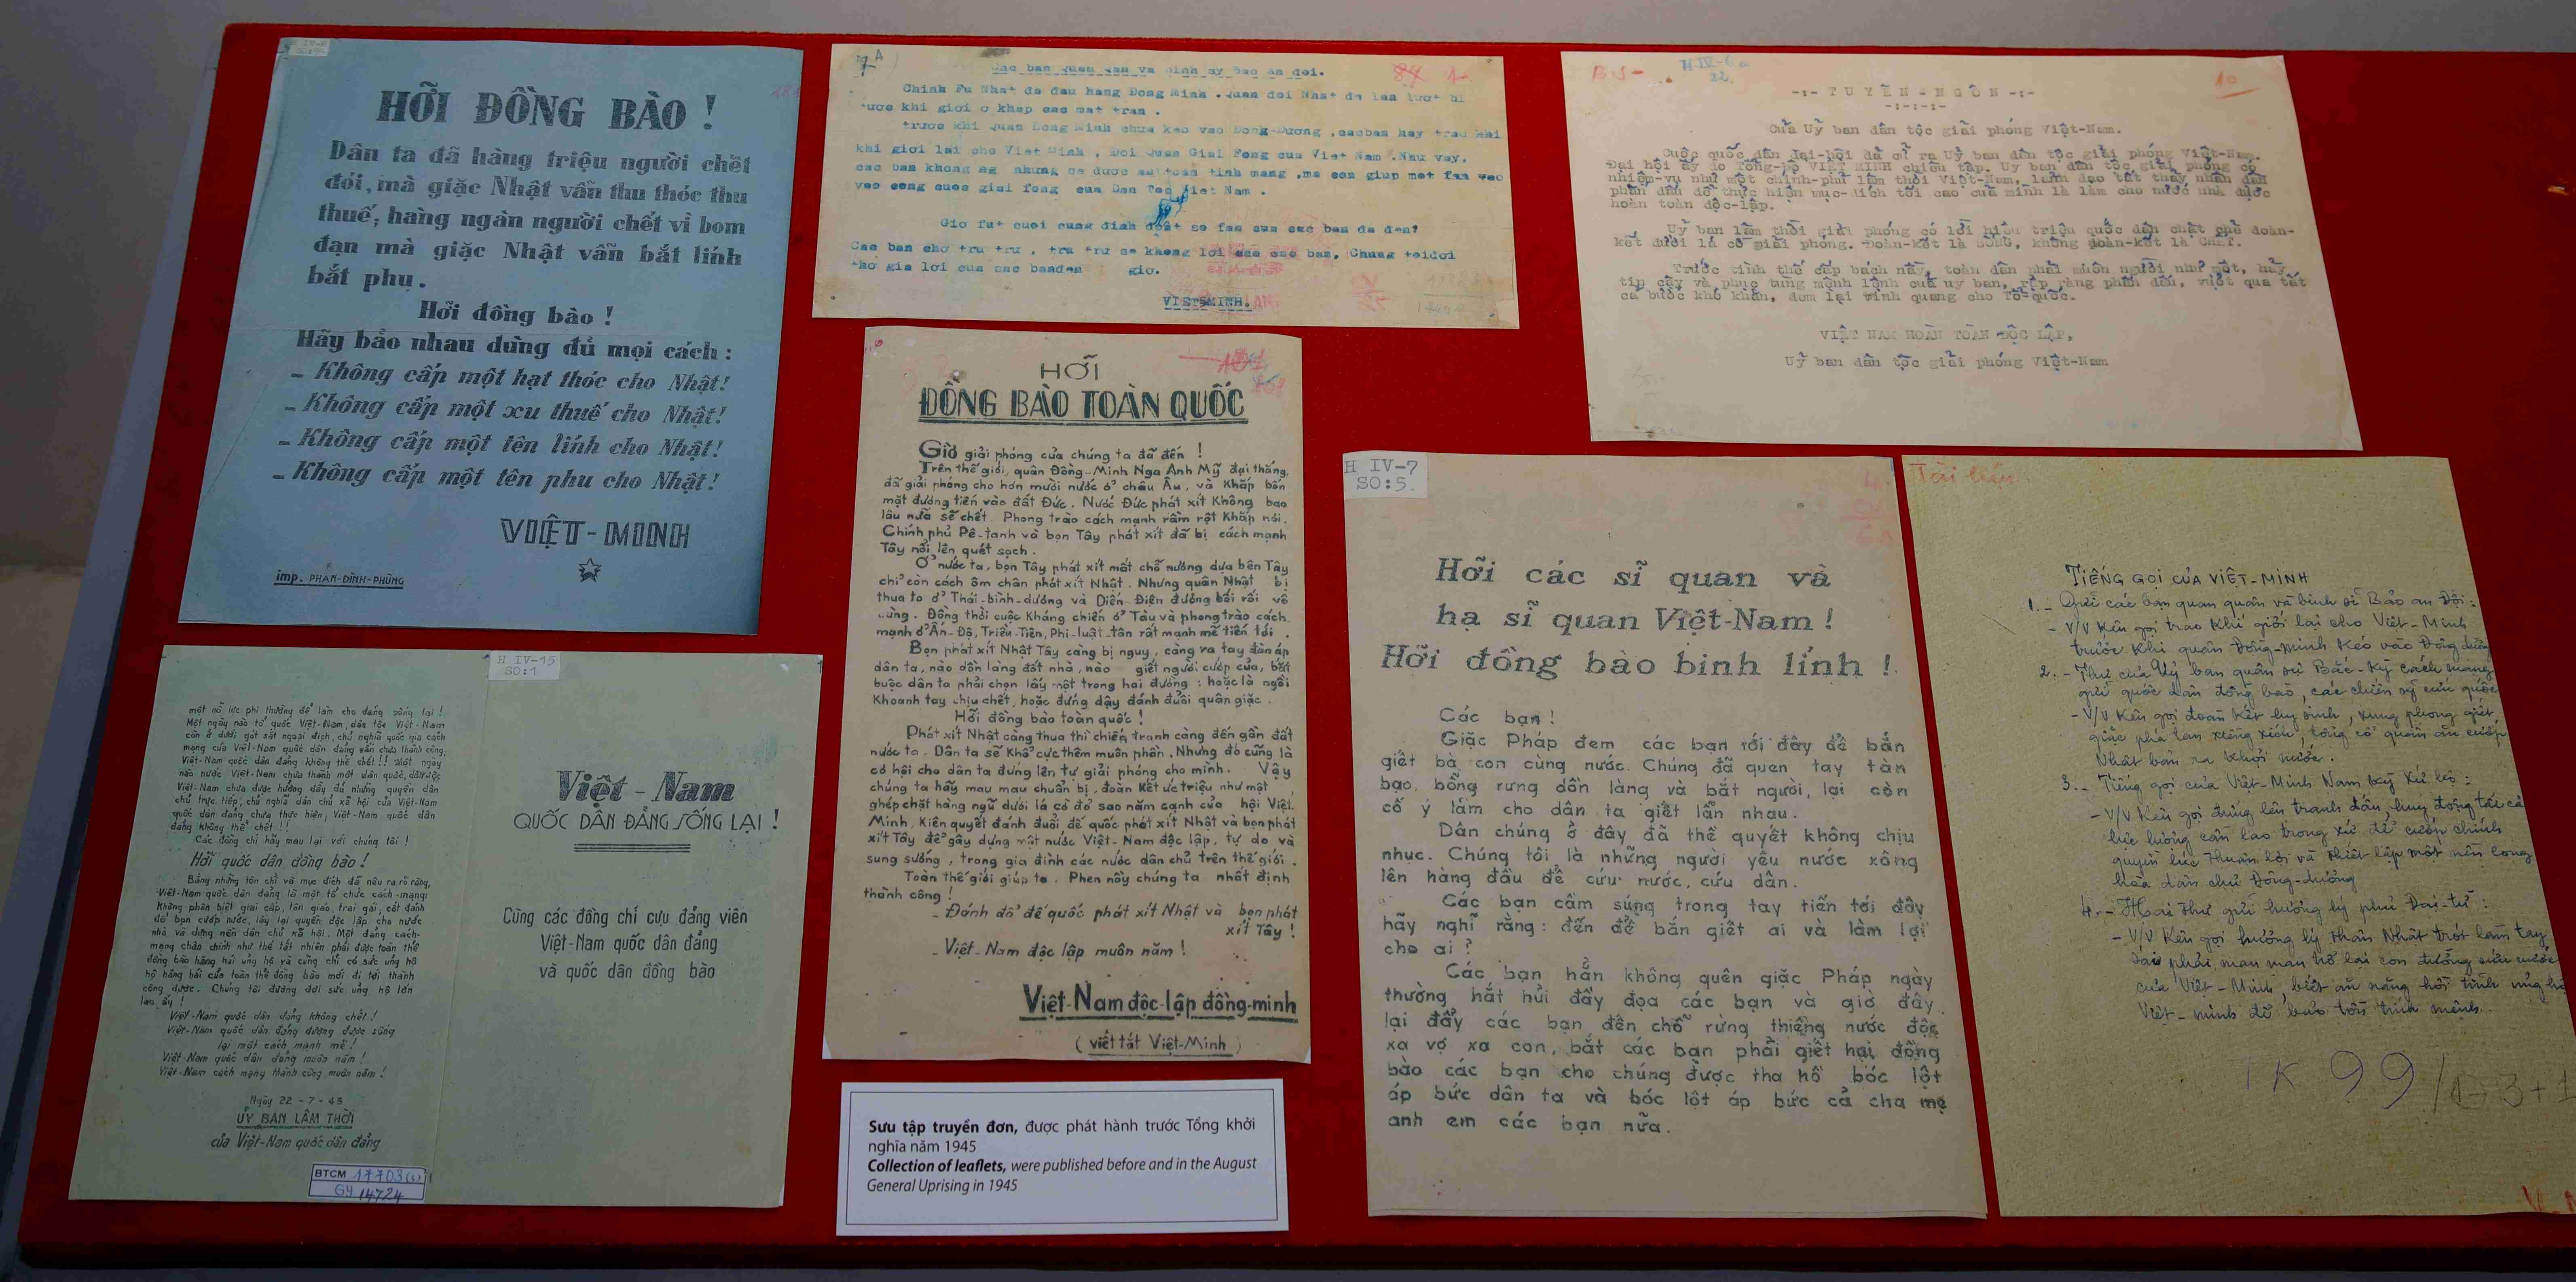 HỠI ĐỒNG BÀO !
Dân ta đã hàng triệu người chết
đói, mà giặc Nhật vẫn thu thóc thu
thuế; hàng ngàn người chết vì bom
đạn mà giặc Nhật vẫn bắt lính
bắt phu.
Hỡi đồng bào !
Hãy bảo nhau dùng đủ mọi cách :
- Không cấp một hạt thóc cho Nhật!
- Không cấp một xu thuế cho Nhật!
- Không cấp một tên lính cho Nhật!
- Không cấp một tên phu cho Nhật!
VIỆT - MINH
imp. PHAN-ĐÌNH-PHÙNG
7A
Cac ban quan quan va binh sy Bao an doi.
Chinh Fu Nhat da dau hang Dong Minh . Quan doi Nhat da lan luot bi
tuoc khi gioi o khap cac mat tran .
truoc khi Quan Dong Minh chua keo vao Dong-Duong , cacban hay trao khi
khi gioi lai cho Viet Minh , Doi Quan Giai Fong cua Viet Nam . Nhu vay,
vao cong cuoc giai fong cua Dan Toc Viet Nam .
Gio fut cuoi cung dinh doat so fan cua cac ban da den?
Cac ban cho tru tru , tru tru se khong loi cho cac ban, Chung toidoi
VIETSMINH.
H IV-6
22
10
-:- T U Y Ê N - N G Ô N -:-
-:-:-:-
Của Uỷ ban dân tộc giải phóng Việt-Nam.
Cuộc quốc dân đại-hội đã cử ra Uỷ ban dân tộc giải phóng Việt-Nam.
Đại hội ấy do Tổng-bộ VIỆT MINH chiêu tập. Uỷ ban dân tộc giải phóng có
nhiệm-vụ như một chính-phủ lâm thời Việt-Nam, lãnh đạo tất thảy nhân dân
phấn đấu để thực hiện mục-đích tối cao của mình là làm cho nước nhà được
hoàn toàn độc-lập.
Uỷ ban lâm thời giải phóng có lời hiệu triệu quốc dân chặt chẽ đoàn-
kết dưới lá cờ giải phóng. Đoàn-kết là SỐNG, không đoàn-kết là CHẾT.
Trước tình thế cấp bách này, toàn dân phải muôn người như một, hãy
tin cậy và phục tùng mệnh lệnh của uỷ ban, rập ràng phấn đấu, vượt qua tất
cả bước khó khăn, đem lại vinh quang cho Tổ-quốc.
VIỆT NAM HOÀN TOÀN ĐỘC LẬP,
Uỷ ban dân tộc giải phóng Việt-Nam
HỠI
ĐỒNG BÀO TOÀN QUỐC
Giờ giải phóng của chúng ta đã đến !
Trên thế giới, quân Đồng-Minh Nga Anh Mỹ đại thắng,
đã giải phóng cho hơn mười nước ở châu Âu, và khắp bốn
mặt đương tiến vào đất Đức. Nước Đức phát xít không bao
lâu nữa sẽ chết. Phong trào cách mạnh rầm rột khắp nơi.
Chính phủ Pê-tanh và bọn Tây phát xít đã bị cách mạnh
Tây nổi lên quét sạch.
Ở nước ta, bọn Tây phát xít mất chỗ nương dựa bên Tây
chỉ còn cách ôm chân phát xít Nhật. Nhưng quân Nhật bị
thua to ở Thái-bình-dương và Diến-Điện đương bối rối vô
cùng. Đồng thời cuộc kháng chiến ở Tàu và phong trào cách
mạnh ở Ấn-Độ, Triều-Tiên, Phi-luật-tân rất mạnh mẽ tiến tới .
Bọn phát xít Nhật Tây càng bị nguy, càng ra tay đàn áp
dân ta, nào dồn làng đốt nhà, nào giết người cướp của, bắt
buộc dân ta phải chọn lấy một trong hai đường : hoặc là ngồi
khoanh tay chịu chết, hoặc đứng dậy đánh đuổi quân giặc .
Hỡi đồng bào toàn quốc !
Phát xít Nhật càng thua thì chiến tranh càng đến gần đất
nước ta. Dân ta sẽ khổ cực thêm muôn phần. Nhưng đó cũng là
cơ hội cho dân ta đứng lên tự giải phóng cho mình. Vậy
chúng ta hãy mau mau chuẩn bị, đoàn kết ức triệu như một ,
ghép chặt hàng ngũ dưới lá cờ đỏ sao năm cạnh của hội Việt
Minh, kiên quyết đánh đuổi đế quốc phát xít Nhật và bọn phát
xít Tây để gây dựng một nước Việt-Nam độc lập, tự do và
sung sướng, trong gia đình các nước dân chủ trên thế giới.
Toàn thế giới giúp ta. Phen nầy chúng ta nhất định
thành công !
- Đánh đổ đế quốc phát xít Nhật và bọn phát
xít Tây !
- Việt-Nam độc lập muôn năm !
Việt-Nam độc-lập đồng-minh
( viết tắt Việt-Minh )
H IV-7
SO:5.
Hỡi các sĩ quan và
hạ sĩ quan Việt-Nam !
Hỡi đồng bào binh lính !
Các bạn !
Giặc Pháp đem các bạn tới đây để bắn
giết bà con cùng nước. Chúng đã quen tay tàn
bạo, bỗng rưng dồn làng và bắt người, lại còn
cố ý làm cho dân ta giết lẫn nhau.
Dân chúng ở đây đã thề quyết không chịu
nhục. Chúng tôi là những người yêu nước xông
lên hàng đầu để cứu nước, cứu dân.
Các bạn cầm súng trong tay tiến tới đây
hãy nghĩ rằng: đến để bắn giết ai và làm lợi
cho ai ?
Các bạn hẳn không quên giặc Pháp ngày
thường hắt hủi đầy đọa các bạn và giờ đây
lại đẩy các bạn đến chỗ rừng thiêng nước độc
xa vợ xa con, bắt các bạn phải giết hại đồng
bào các bạn cho chúng được tha hồ bóc lột
áp bức dân ta và bóc lột áp bức cả cha mẹ
anh em các bạn nữa.
Tài liệu
TIẾNG GỌI CỦA VIỆT-MINH
1.- Gửi các bạn quan quân và binh sĩ Bảo an Đội :
- V/V Kêu gọi trao khí giới lại cho Việt-Minh
trước khi quân Đồng-minh kéo vào Đông dương
2.- Thư của Uỷ ban quân sự Bắc-Kỳ cách mạng
gửi quốc dân đồng bào, các chiến sỹ cứu quốc
- V/V Kêu gọi đoàn kết hy sinh, xung phong giết
giặc phá tan xiềng xích, tống cổ quân ăn cướp
Nhật bản ra khỏi nước.
3.- Tiếng gọi của Việt-Minh Nam Kỳ Xứ bộ :
- V/V Kêu gọi đứng lên tranh đấu, huy động tất cả
lực lượng cần lao trong xứ để cướp chính
quyền lúc thuận lợi và thiết lập một nền cộng
hòa dân chủ Đông-dương
4.- Hai thư gửi hương lý phủ Đại-từ :
- V/V Kêu gọi hương lý thân Nhật trót lầm tay
sai phải mau mau trở lại con đường cứu nước
của Việt-Minh, biết ăn năng hối tình ủng hộ
Việt-minh để bảo tồn tính mệnh.
1K 99
H IV-15
SO:1
một nỗ lực phi thường để làm cho đảng sống lại !
Một ngày nào tổ quốc Việt-Nam, dân tộc Việt-Nam
còn ở dưới gót sắt ngoại địch, chủ nghĩa quốc gia cách
mạng của Việt-Nam quốc dân đảng vẫn chưa thành công,
Việt-Nam quốc dân đảng không thể chết !! Một ngày
nào nước Việt-Nam chưa thành một dân quốc, dân tộc
Việt-Nam chưa được hưởng đầy đủ những quyền dân
chủ trực tiếp, chủ nghĩa dân chủ xã hội của Việt-Nam
quốc dân đảng chưa thực hiện, Việt-Nam quốc dân
đảng không thể chết !!
Các đồng chí hãy mau lại với chúng tôi !
Hỡi quốc dân đồng bào !
Bằng những tôn chỉ và mục đích đã nêu ra rõ ràng,
Việt-Nam quốc dân đảng là một tổ chức cách-mạng
không phân biệt giai cấp, tôn giáo, trai gái, cốt đánh
đổ bọn cướp nước, lấy lại quyền độc lập cho nước
nhà và dựng nên dân chủ xã hội. Một đảng cách-
mạng chân chính như thế tất nhiên phải được toàn thể
đồng bào hăng hái ủng hộ và cũng chỉ có sức ủng hộ
hộ hăng hái của toàn thể đồng bào mới đi tới thành
công được. Chúng tôi đương đợi sức ủng hộ lớn
lao ấy !
Việt-Nam quốc dân đảng không chết !
Việt-Nam quốc dân đảng đương được sống
lại một cách mạnh mẽ !
Việt-Nam quốc dân đảng muôn năm !
Việt-Nam cách mạng thành công muôn năm !
Ngày 22-7-43
UỶ BAN LÂM THỜI
của Việt-Nam quốc dân đảng
BTCM 17703(1)
Gy 14724
Việt-Nam
QUỐC DÂN ĐẢNG SỐNG LẠI !
Cùng các đồng chí cựu đảng viên
Việt-Nam quốc dân đảng
và quốc dân đồng bào
Sưu tập truyền đơn, được phát hành trước Tổng khởi
nghĩa năm 1945
Collection of leaflets, were published before and in the August
General Uprising in 1945